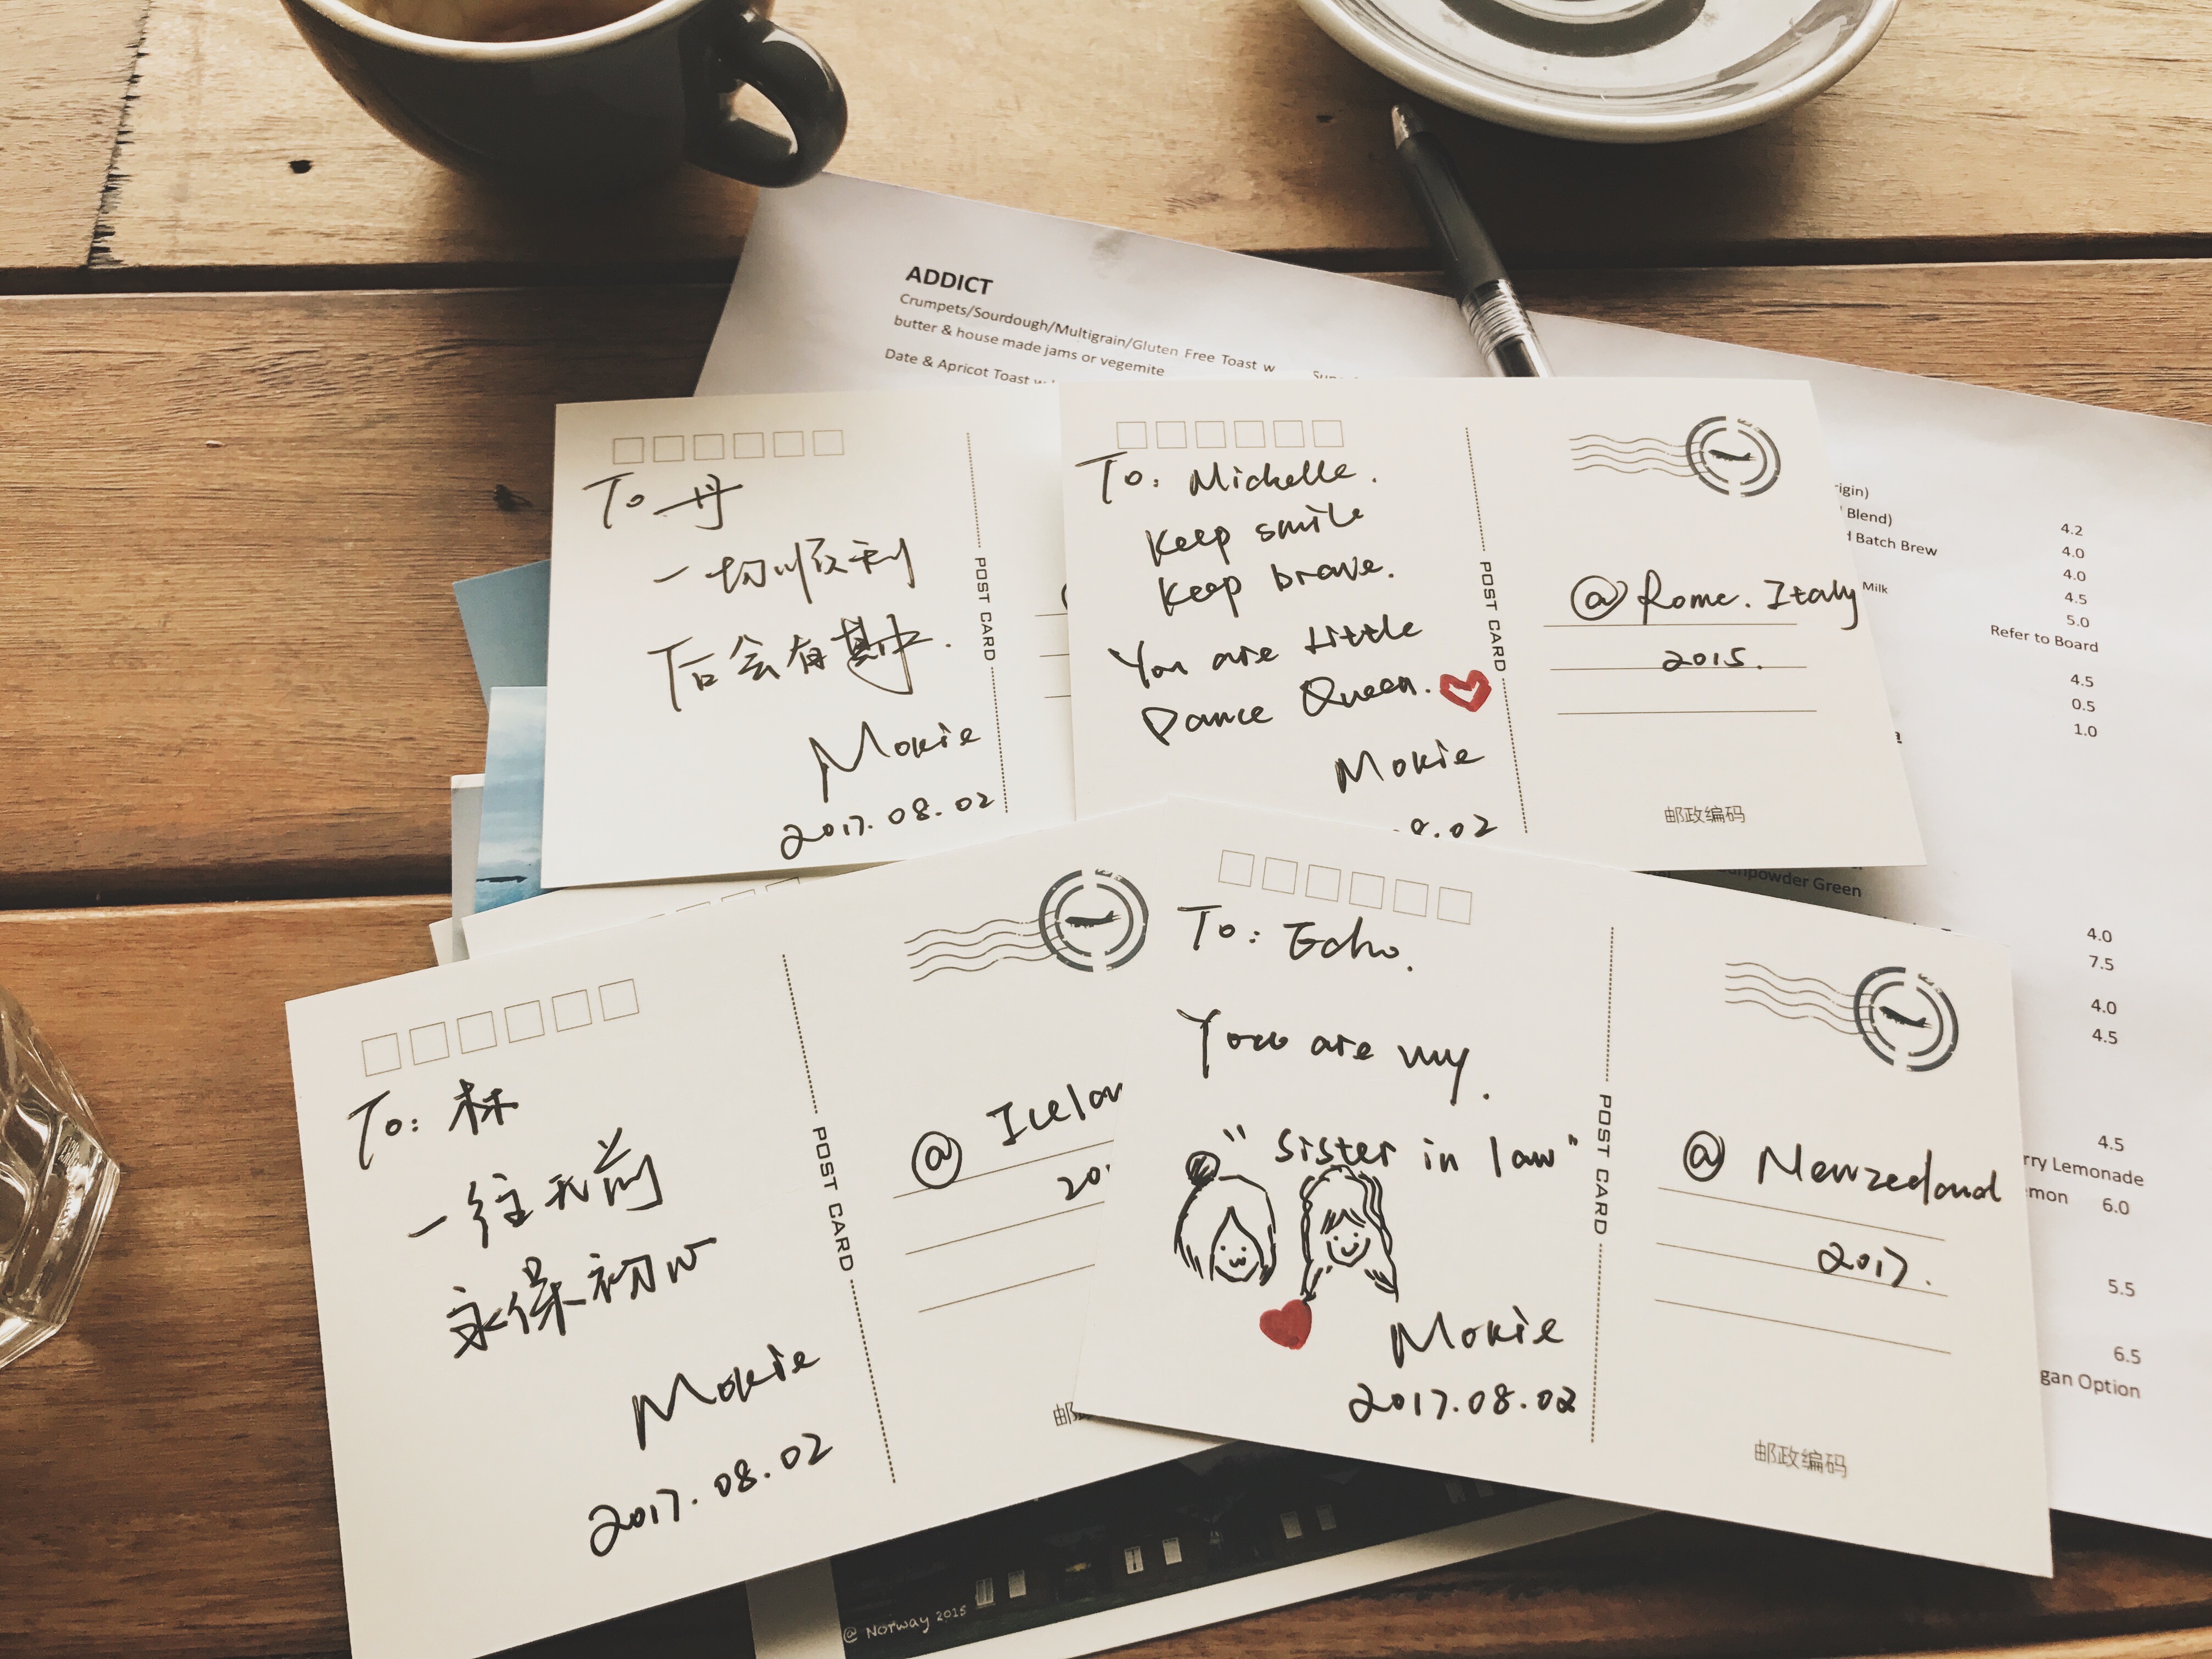 ADDICT
Crumpets/Sourdough/Multigrain/Gluten Free Toast w
butter & house made jams or vegemite
Date & Apricot Toast
igin)
Blend)
4.2
d Batch Brew
4.0
4.0
Milk
4.5
5.0
Refer to Board
4.5
0.5
1.0
npowder Green
4.0
7.5
4.0
4.5
4.5
rry Lemonade
mon 6.0
5.5
6.5
gan Option
To 丹
一切顺利
后会有期.
Mokie
2017.08.02
POST CARD
To: Michelle.
Keep smile
Keep brave.
You are Little
Dance Queen.
Mokie
8.02
POST CARD
@ Rome. Italy
2015.
邮政编码
To: 林
一往无前
永保初心
Mokie
2017.08.02
POST CARD
@ Icelan
20
邮
To: Echo.
You are my.
"sister in law"
Mokie
2017.08.02
POST CARD
@ Newzealand
2017.
邮政编码
@ Norway 2015